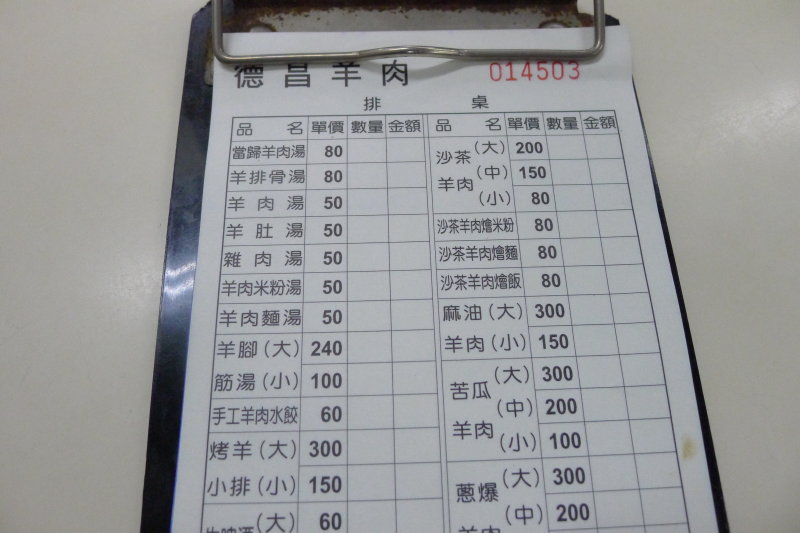 德昌羊肉 014503
排 桌
品名 單價 數量 金額
當歸羊肉湯 80
羊排骨湯 80
羊肉湯 50
羊肚湯 50
雜肉湯 50
羊肉米粉湯 50
羊肉麵湯 50
羊腳(大) 240
筋湯(小) 100
手工羊肉水餃 60
烤羊(大) 300
小排(小) 150
啤酒(大) 60
品名 單價 數量 金額
沙茶(大) 200
羊肉(中) 150
(小) 80
沙茶羊肉燴米粉 80
沙茶羊肉燴麵 80
沙茶羊肉燴飯 80
麻油(大) 300
羊肉(小) 150
苦瓜(大) 300
(中) 200
羊肉(小) 100
蔥爆(大) 300
羊肉(中) 200